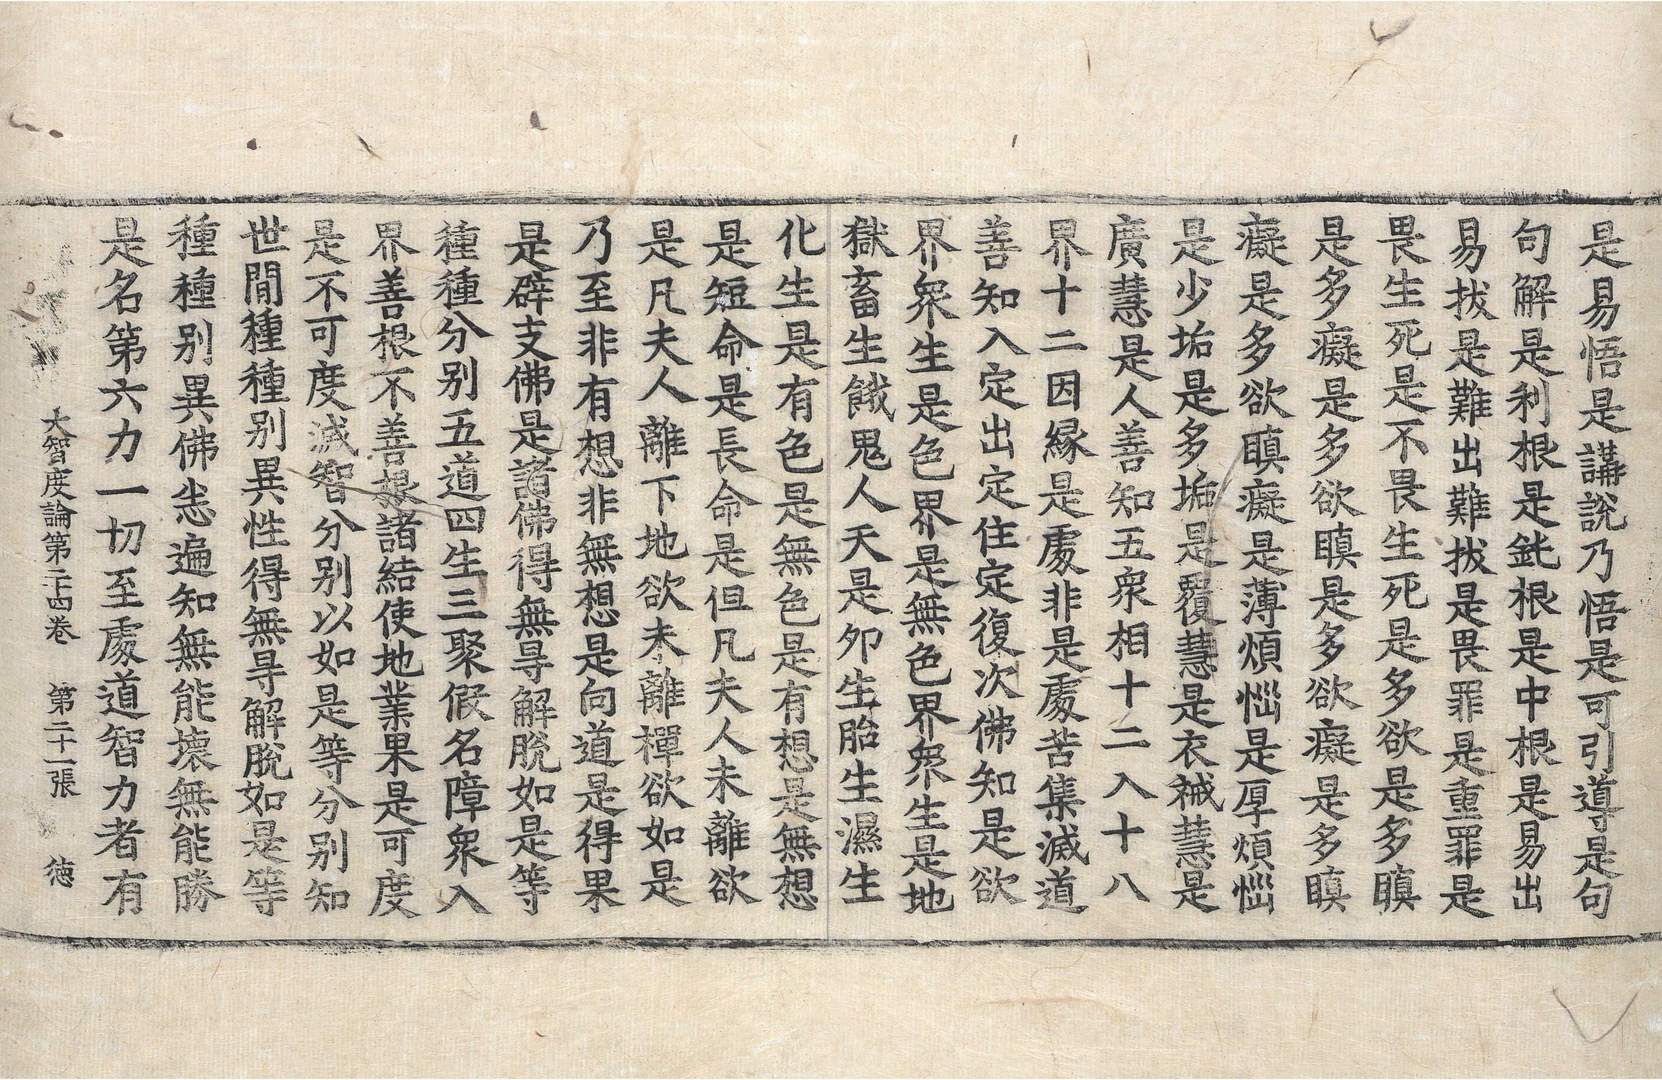 是易悟是講說乃悟是可引導是句
句解是利根是鈍根是中根是易出
易拔是難出難拔是畏罪是重罪是
畏生死是不畏生死是多欲是多瞋
是多癡是多欲瞋是多欲癡是多瞋
癡是多欲瞋癡是薄煩惱是厚煩惱
是少垢是多垢是覆慧是衣裓慧是
廣慧是人善知五衆相十二入十八
界十二因緣是處非是處苦集滅道
善知入定出定住定復次佛知是欲
界衆生是色界是無色界衆生是地
獄畜生餓鬼人天是卵生胎生濕生
化生是有色是無色是有想是無想
是短命是長命是但凡夫人未離欲
是凡夫人離下地欲未離禪欲如是
乃至非有想非無想是向道是得果
是辟支佛是諸佛得無㝵解脫如是等
種種分別五道四生三聚假名障衆入
界善根不善根諸結使地業果是可度
是不可度滅智分別以如是等分別知
世間種種別異性得無㝵解脫如是等
種種別異佛悉遍知無能壞無能勝
是名第六力一切至處道智力者有
大智度論第二十四卷　第二十一張　徳